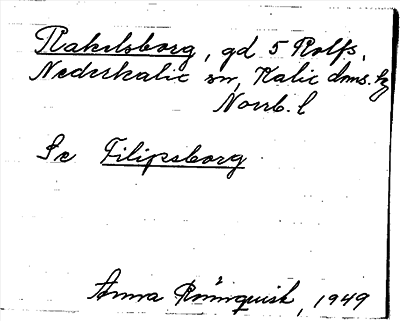 Rakelsborg, gd 5 Rolfs,
Nederkalix sn, Kalix dms. tg
Norrb. l
Se Filipsborg
Anna Rönnquist, 1949